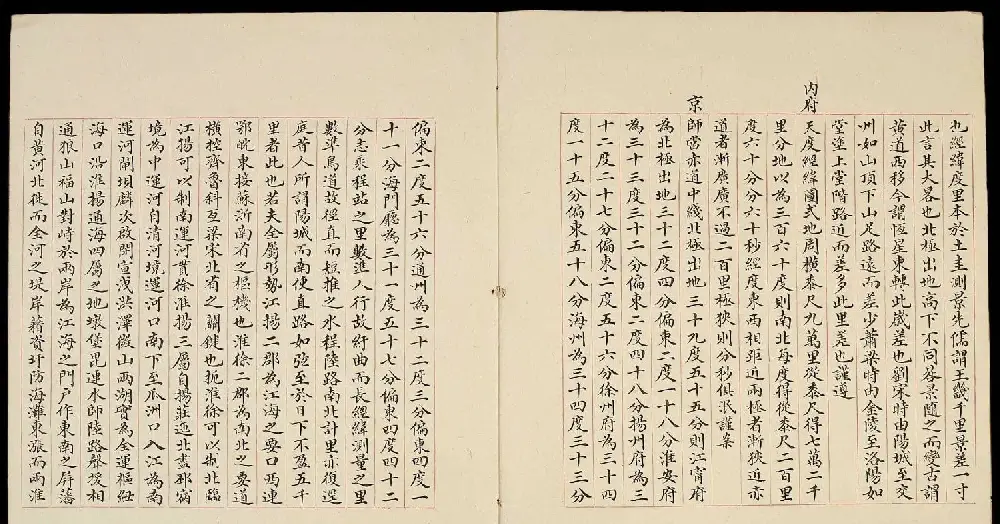 也經緯度里本於土圭測景先儒謂王畿千里景差一寸
此言其大畧也北極出地高下不同晷景隨之而變古謂
黃道西移今謂恆星東轉此歲差也劉宋時由陽城至交
州如山頂下山足路遠而差少蕭梁時由金陵至洛陽如
堂塗上堂階路近而差多此里差也謹遵
內府天度經緯圖式地周橫黍尺九萬里從黍尺得七萬二千
里分地以為三百六十度則南北每度得從黍尺二百里
度六十分分六十秒經度東西相距近兩極者漸狹近赤
道者漸廣廣不過二百里極狹則分秒俱泯謹案
京師當赤道中綫北極出地三十九度五十五分則江寧府
為北極出地三十二度四分偏東二度一十八分淮安府
為三十三度三十二分偏東二度四十八分揚州府為三
十二度二十七分偏東二度五十六分徐州府為三十四
度一十五分偏東五十八分海州為三十四度三十三分
偏東二度五十六分通州為三十二度三分偏東四度一
十一分海門廳為三十一度五十七分偏東四度四十二
分志乘程站之里數準人行故紆曲而長經緯測量之里
數準鳥道故徑直而短推之水程陸路南北計里亦復逕
庭昔人所謂陽城而南使直路如弦至於日下不盈五千
里者此也若夫全局形勢江揚二郡為江海之要口西連
鄂皖東接蘇浙南省之樞機也淮徐二郡為南北之要道
橫控齊魯斜互梁宋北省之關鍵也扼淮徐可以制北臨
江揚可以制南運河貫徐淮揚三屬自揚莊迤北盡邳宿
境為中運河自清河境運河口南下至瓜洲口入江為南
運河閘壩麟次啟閉宣洩洪澤微山兩湖實為全運樞紐
海口沿淮揚通海四屬之地墩堡毘連水師陸路聲援相
通狼山福山對峙於兩岸為江海之門戶作東南之屏藩
自黃河北徙而全河之堤岸藉資圩防海灘東漲而兩淮